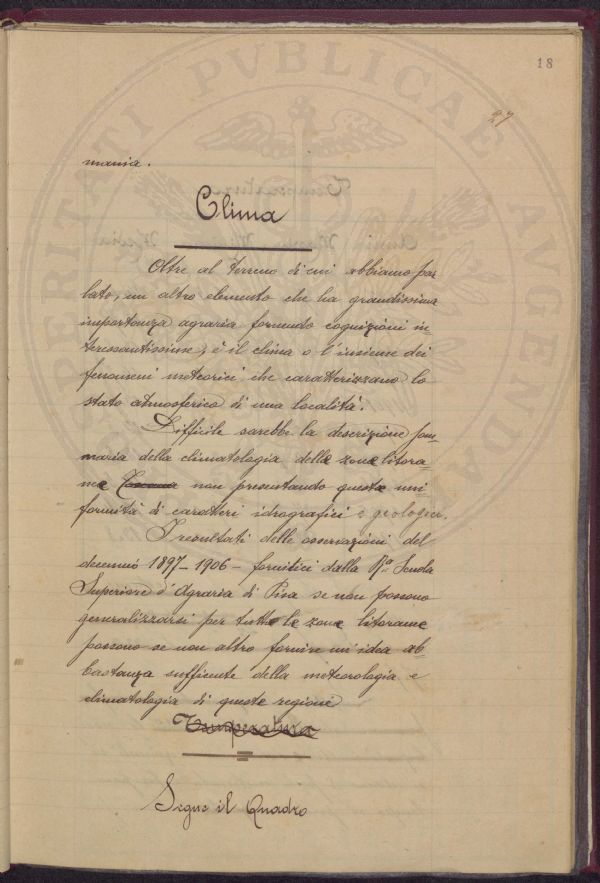 18
27
mania.
Clima
Oltre al terreno di cui abbiamo par
lato, un altro elemento che ha grandissima
importanza agraria formando cognizioni in-
teressantissime, è il clima o l'insieme dei
fenomeni meteorici che caratterizzano lo
stato atmosferico di una località.
Difficile sarebbe la descrizione som
maria della climatologia della zona litora-
nea non presentando questa uni
formità di caratteri idrografici e geologici.
I resultati delle osservazioni del
decennio 1897-1906 - fornitici dalla Ra Scuola
Superiore d'Agraria di Pisa se non possono
generalizzarsi per tutte le zone litoranee
possono se non altro fornire un'idea ab-
bastanza sufficente della meteorologia e
climatologia di queste regione
Temperatura
Segue il Quadro
PERITATI PVBLICAE AVGENDAE